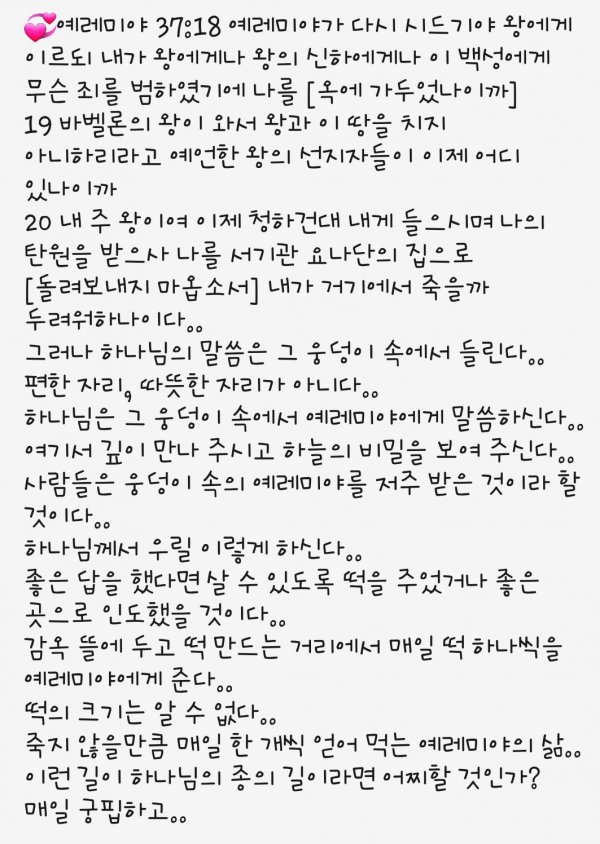 💞예레미야 37:18 예레미야가 다시 시드기야 왕에게
이르되 내가 왕에게나 왕의 신하에게나 이 백성에게
무슨 죄를 범하였기에 나를 [옥에 가두었나이까]
19 바벨론의 왕이 와서 왕과 이 땅을 치지
아니하리라고 예언한 왕의 선지자들이 이제 어디
있나이까
20 내 주 왕이여 이제 청하건대 내게 들으시며 나의
탄원을 받으사 나를 서기관 요나단의 집으로
[돌려보내지 마옵소서] 내가 거기에서 죽을까
두려워하나이다..
그러나 하나님의 말씀은 그 웅덩이 속에서 들린다..
편한 자리, 따뜻한 자리가 아니다..
하나님은 그 웅덩이 속에서 예레미야에게 말씀하신다..
여기서 깊이 만나 주시고 하늘의 비밀을 보여 주신다..
사람들은 웅덩이 속의 예레미야를 저주 받은 것이라 할
것이다..
하나님께서 우릴 이렇게 하신다..
좋은 답을 했다면 살 수 있도록 떡을 주었거나 좋은
곳으로 인도했을 것이다..
감옥 뜰에 두고 떡 만드는 거리에서 매일 떡 하나씩을
예레미야에게 준다..
떡의 크기는 알 수 없다..
죽지 않을만큼 매일 한 개씩 얻어 먹는 예레미야의 삶..
이런 길이 하나님의 종의 길이라면 어찌할 것인가?
매일 궁핍하고..